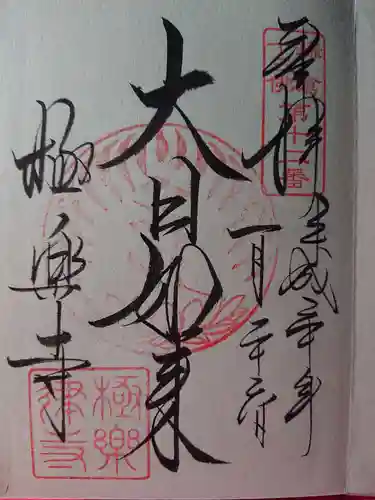 奉拝
平成二十年
一月
二十六日
大日如来
極楽寺
十三佛
第十二番
極樂
律寺